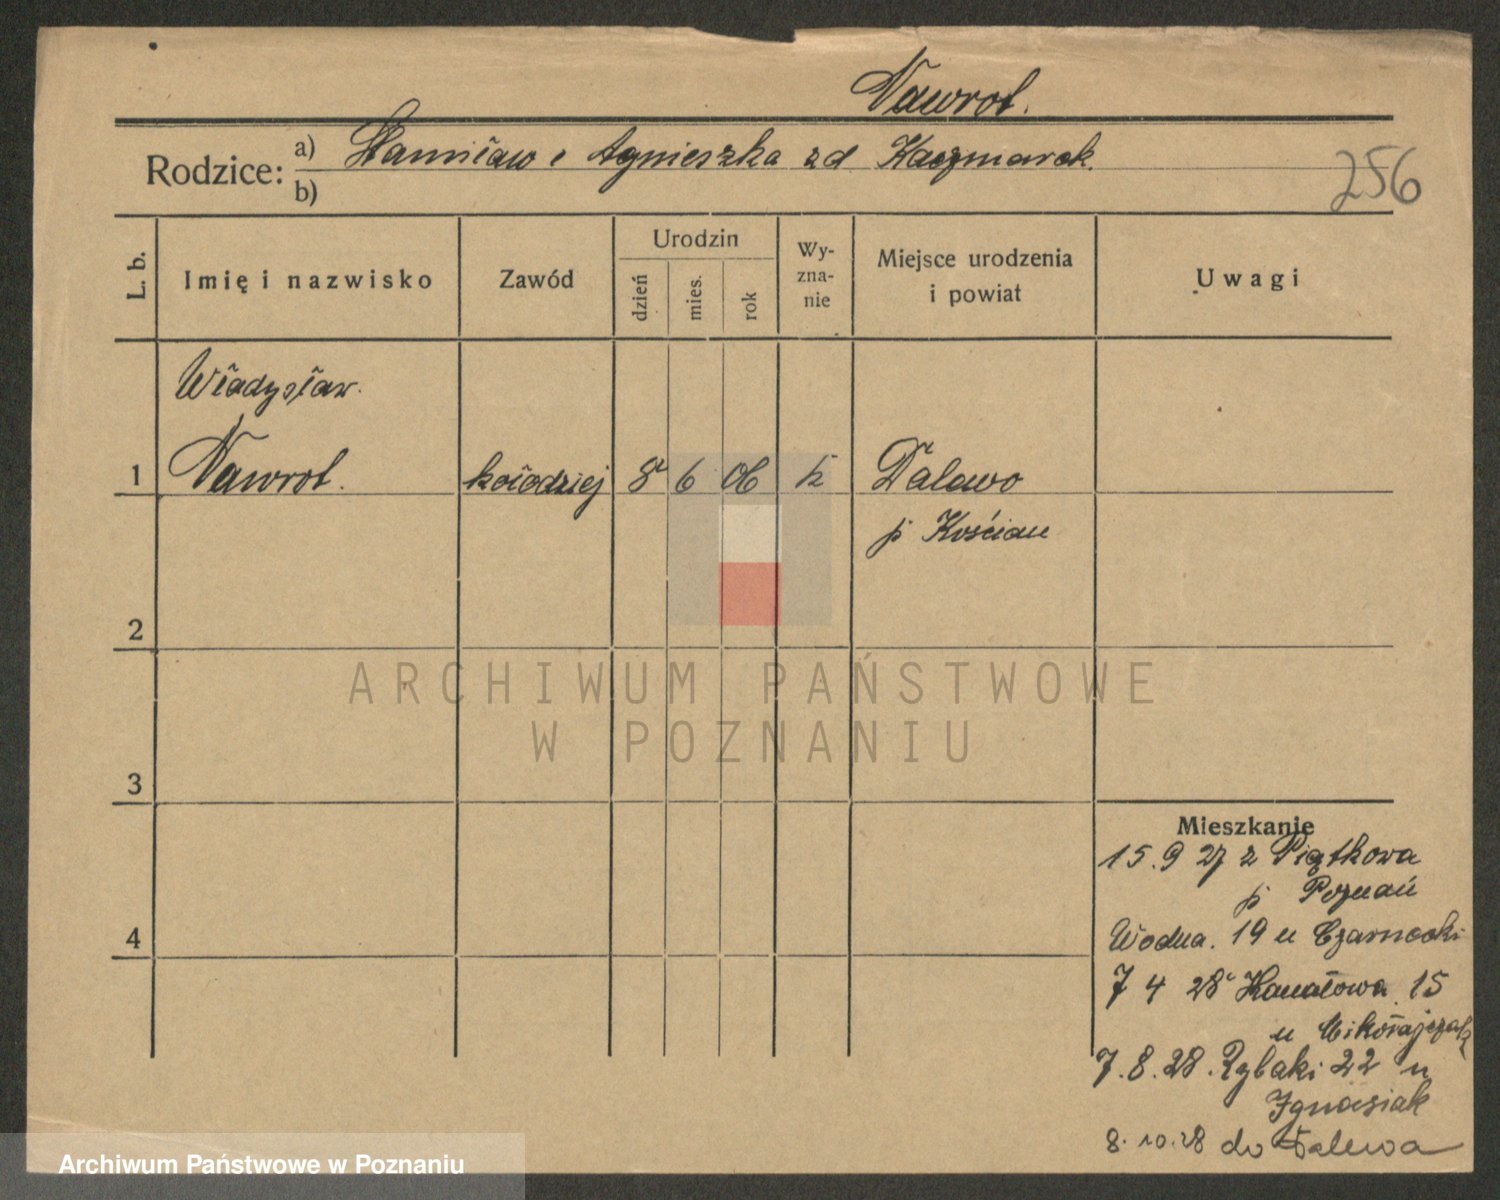 Nawrot.
Rodzice: a) Stanisław i Agnieszka zd Kaczmarek.
b)
256
L. b.
Imię i nazwisko
Zawód
Urodzin
dzień
mies.
rok
Wy-
zna-
nie
Miejsce urodzenia
i powiat
Uwagi
Władysław.
1 Nawrot. kołodziej 8 6 06 k Dalewo
p Kościan
2
ARCHIWUM PAŃSTWOWE
W POZNANIU
3
Mieszkanie
15.9 27 z Piątkowa
p Poznań
4
Wodna. 19 u Czarnecki
7 4 28 Kanałowa 15
u Mikołajczak
7.8.28. Rybaki 22 u
Ignasiak
8.10.28 do Dalewa
Archiwum Państwowe w Poznaniu